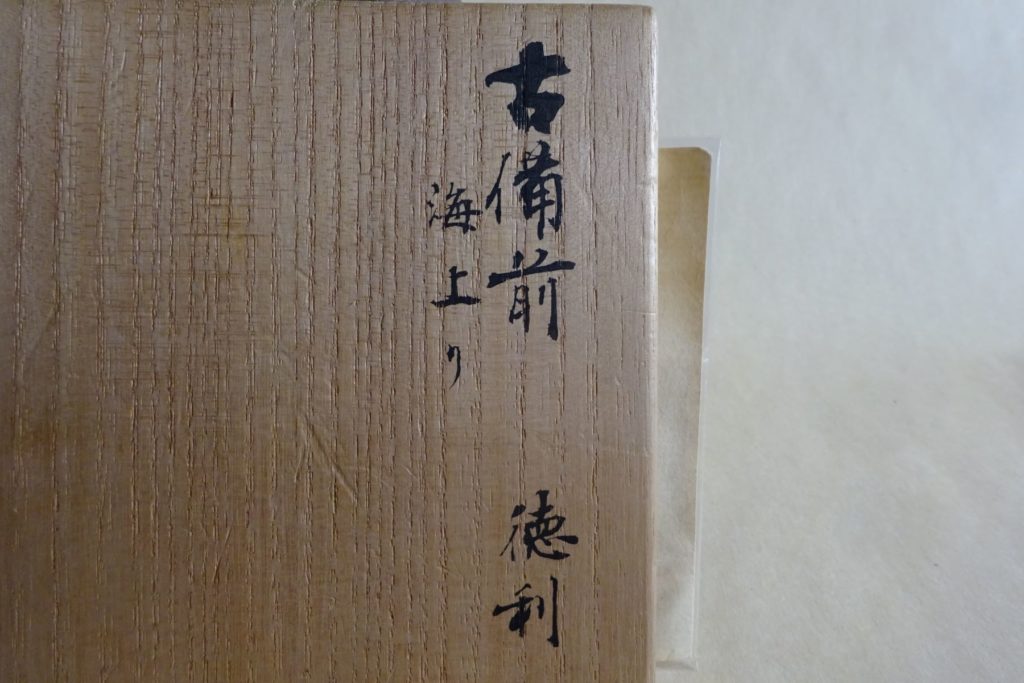 古備前　徳利
海上り